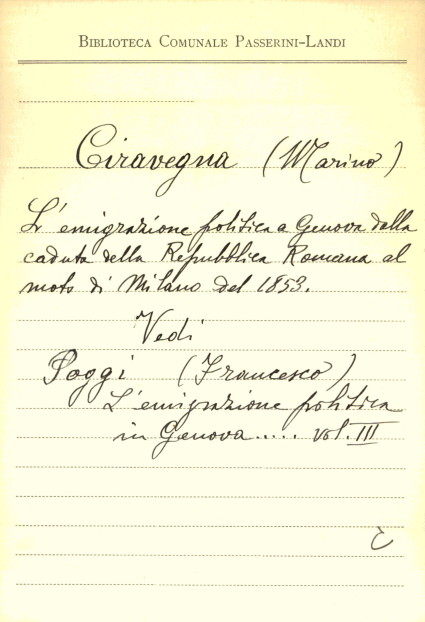 BIBLIOTECA COMUNALE PASSERINI-LANDI
Ciravegna (Marino)
L'emigrazione politica a Genova dalla
caduta della Repubblica Romana al
moto di Milano del 1853.
Vedi
Poggi (Francesco)
L'emigrazione politica
in Genova..... vol. III